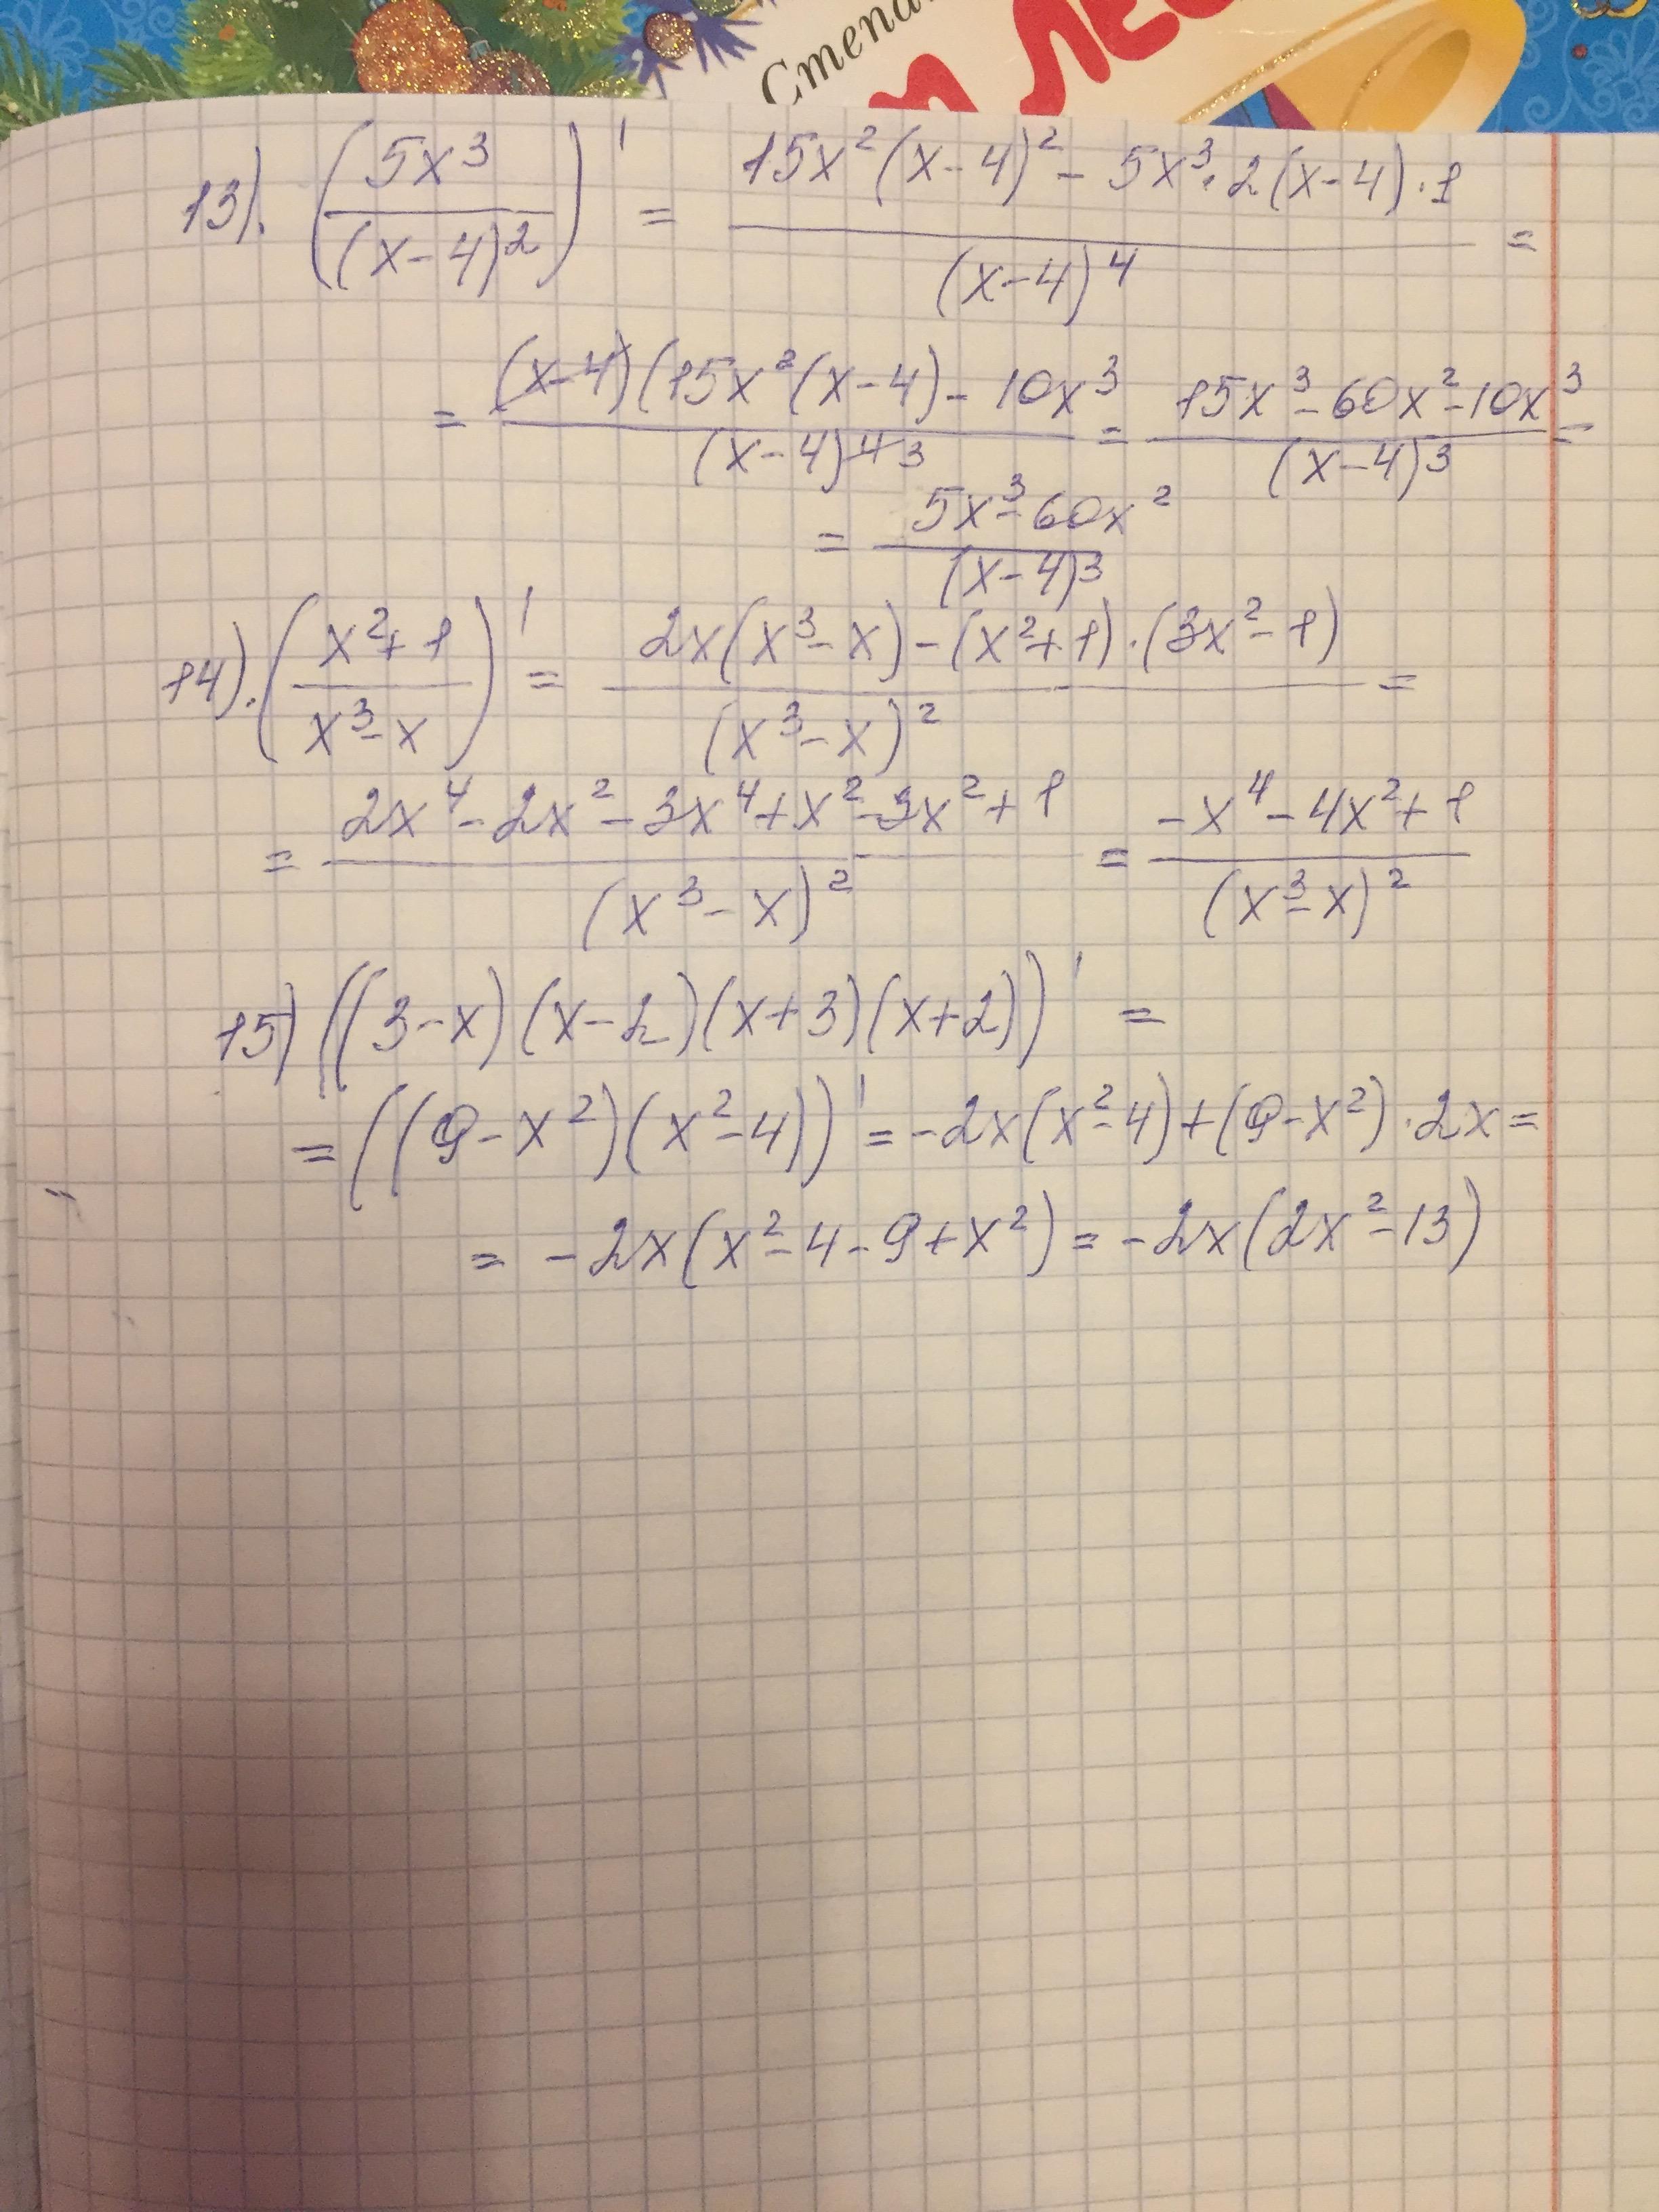 Степа
м лес
13). (5x³/(x-4)²)' = (15x²(x-4)² - 5x³·2(x-4)·1)/(x-4)⁴ =
= (x-4)(15x²(x-4) - 10x³/(x-4)⁴ ³ = (15x³-60x²-10x³)/(x-4)³ =
= (5x³-60x²)/(x-4)³
14). ((x²+1)/(x³-x))' = (2x(x³-x)-(x²+1)·(3x²-1))/(x³-x)² =
= (2x⁴-2x²-3x⁴+x²-3x²+1)/(x³-x)² = (-x⁴-4x²+1)/(x³-x)²
15) ((3-x)(x-2)(x+3)(x+2))' =
= ((9-x²)(x²-4))' = -2x(x²-4)+(9-x²)·2x =
= -2x(x²-4-9+x²) = -2x(2x²-13)